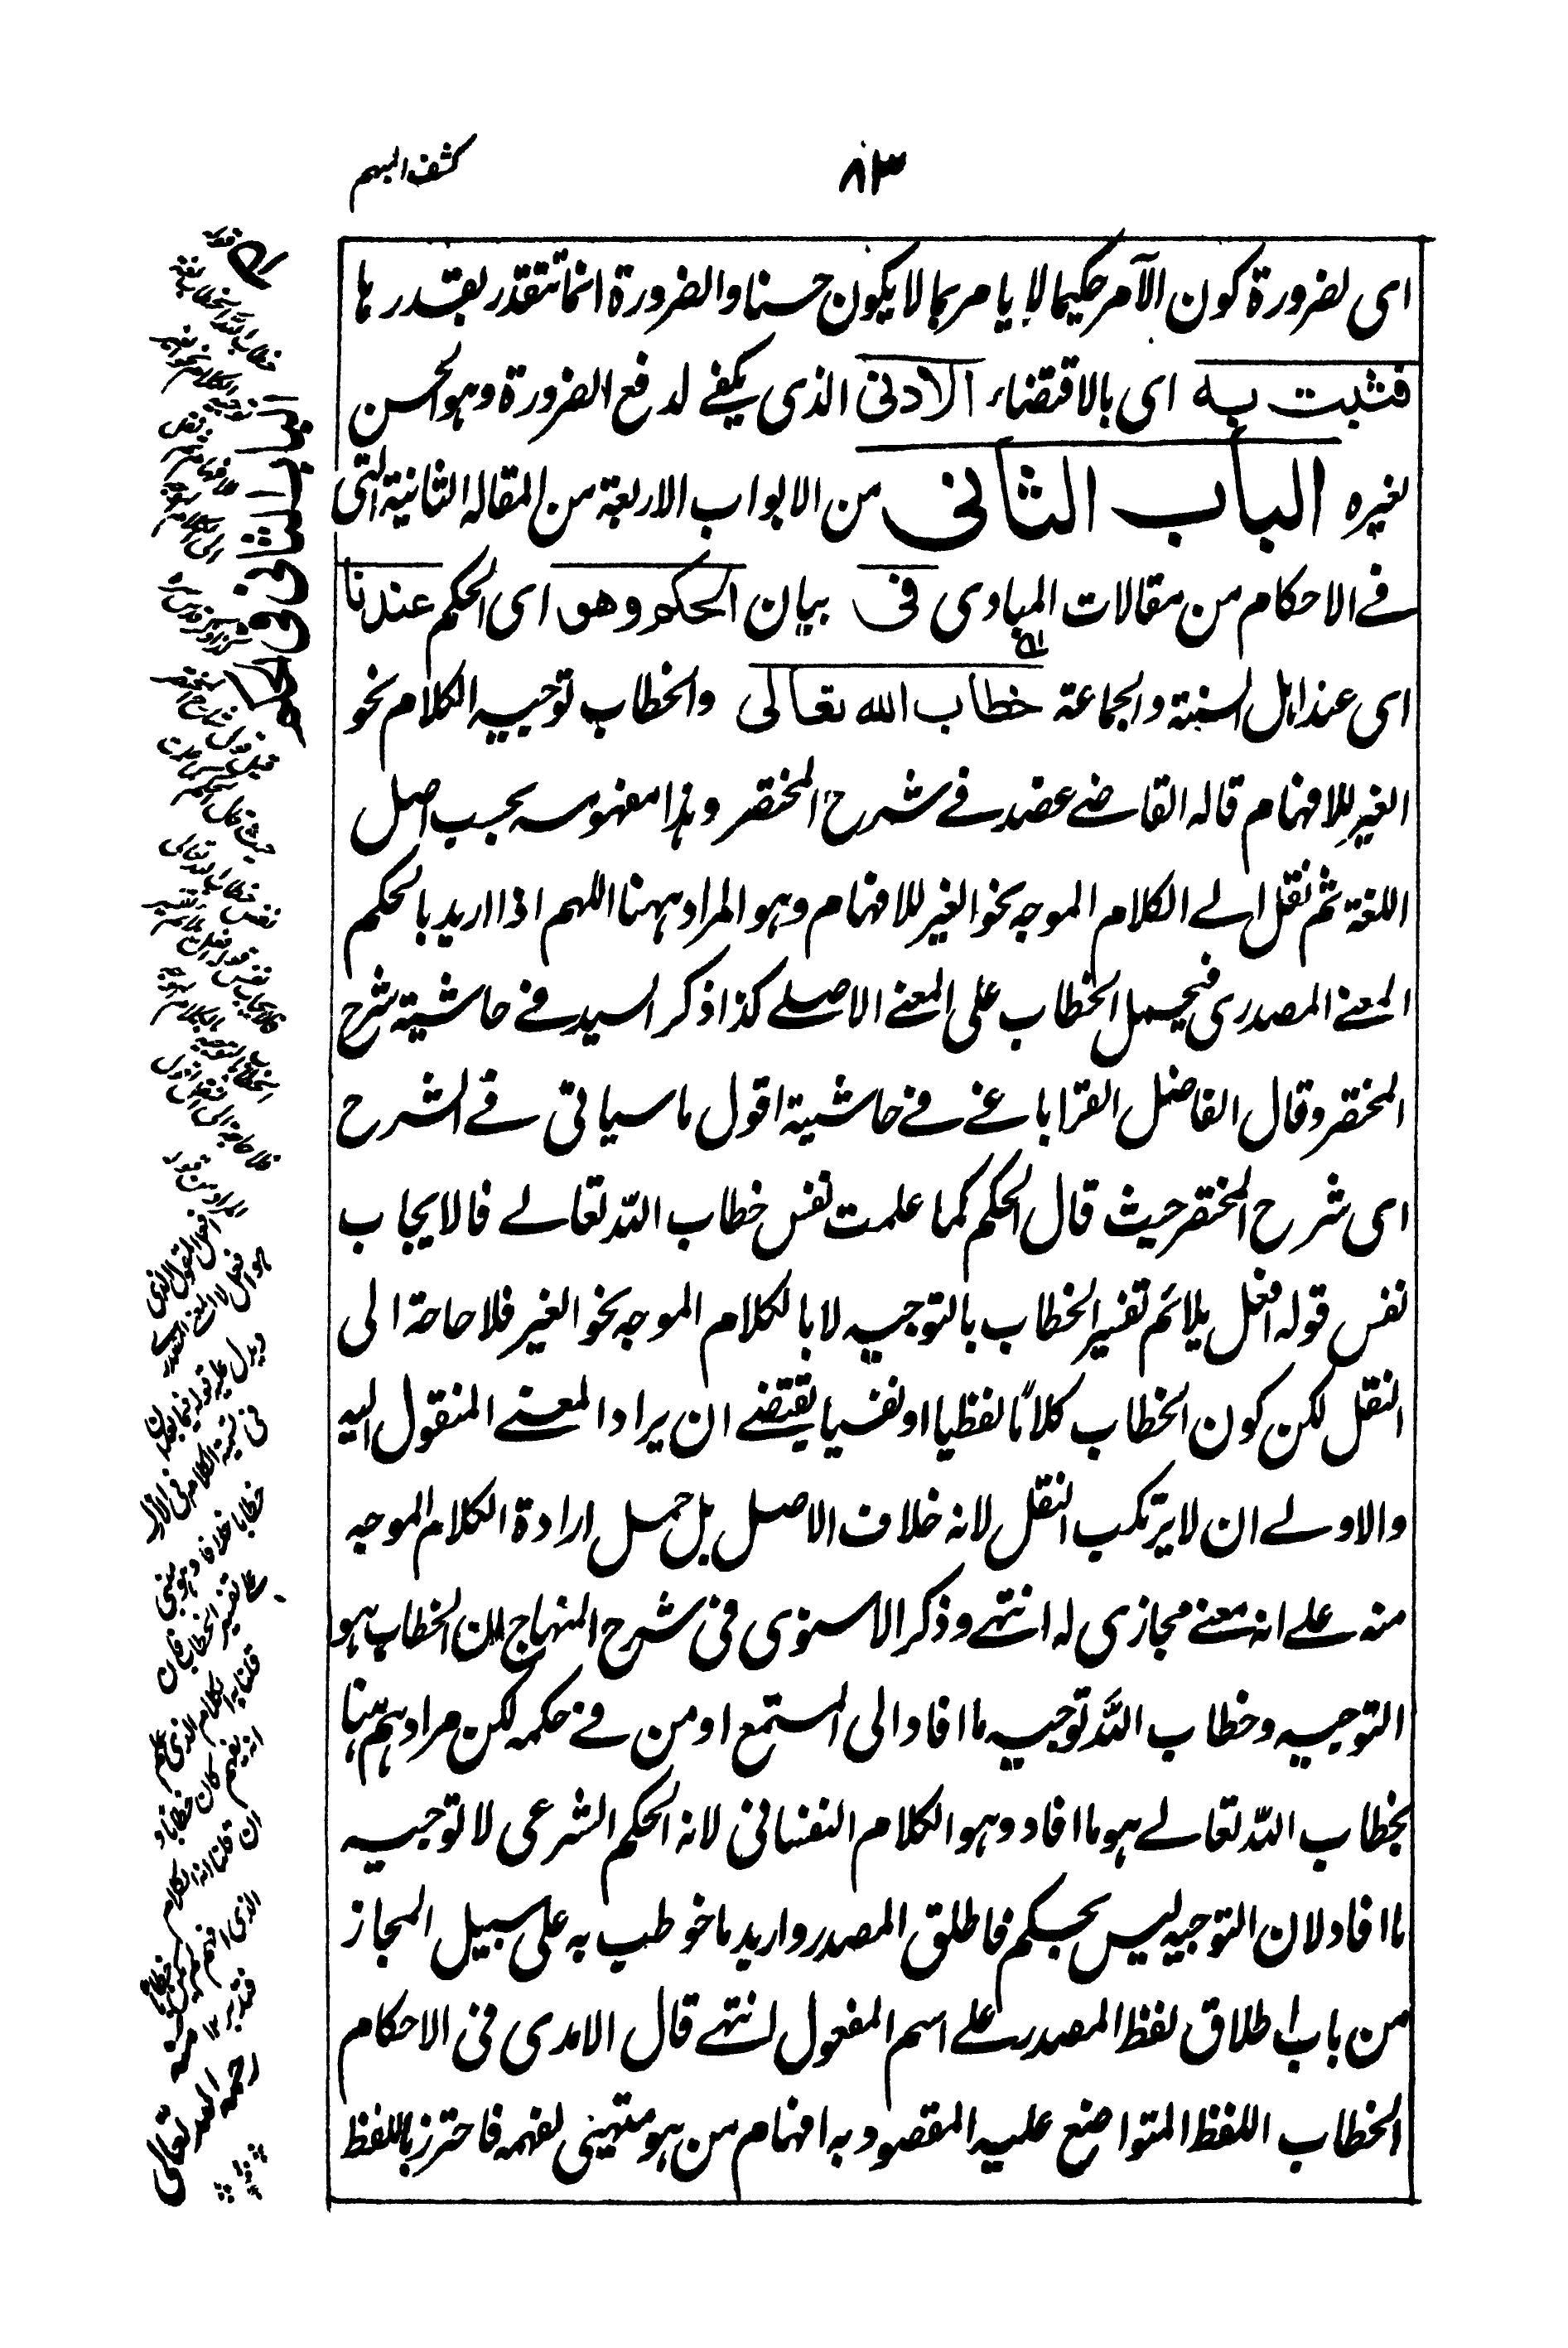 ٨٣
كشف المبهم
اى لضرورة كون الآمر حكيما لا يامر بما لا يكون حسنا والضرورة انما تتقدر بقدرها
فثبت به اى بالاقتضاء الادنى الذى يكفے لدفع الضرورة وهو الحسن
لغيره الباب الثانى من الابواب الاربعة من المقاله الثانية التى
فے الاحكام من مقالات المبادى فى بيان الحكم وهو اى الحكم عندنا
اى عند اهل السنة والجماعة خطاب الله تعالى والخطاب توجيه الكلام نحو
الغير للافهام قاله القاضے عضد فے شرح المختصر وهذا مفهومه بحسب اصل
اللغة ثم نقل الے الكلام الموجه نحو الغير للافهام وهو المراد ههنا اللهم اذا اريد بالحكم
المعنے المصدرى فيحمل الخطاب على المعنے الاصلے كذا ذكر السيد فے حاشية شرح
المختصر وقال الفاضل القرا باغے فے حاشية اقول ما سياتى فے الشرح
اى شرح المختصر حيث قال الحكم كما علمت نفس خطاب الله تعالے فالايجاب
نفس قوله افعل يلائم تفسير الخطاب بالتوجيه لا بالكلام الموجه نحو الغير فلا حاجة الى
النقل لكن كون الخطاب كلامًا لفظيا او نفسيا يقتضے ان يراد المعنے المنقول اليه
والاولے ان لا يرتكب النقل لانه خلاف الاصل بل حمل ارادة الكلام الموجه
منه علے انه معنے مجازى له انتهے وذكر الاسنوى فى شرح المنهاج ان الخطاب هو
التوجيه وخطاب الله توجيه ما افاد الى المستمع او من فے حكمه لكن مرادهم هنا
بخطاب الله تعالے هو ما افاد وهو الكلام النفسانى لانه الحكم الشرعى لا توجيه
ما افاد لان التوجيه ليس بحكم فاطلق المصدر واريد ما خوطب به على سبيل المجاز
من باب اطلاق لفظ المصدر علے اسم المفعول انتهے قال الامدى فى الاحكام
الخطاب اللفظ المتواضع عليه المقصود به افهام من هو متهيئ لفهمه فاحترز باللفظ
الباب الثانى فى الحكم
هو افعل لا المعنے المصدرى
ويدل عليه قوله فيما بعد ان
فى تسمية الكلام فى الازل
خطابا خلافا وهو مبنى
علے تفسير الخطاب فان
قلنا انه الكلام الذى علم
انه يفهم كان خطابا و
ان قلنا انه الكلام
الذى افهم لم يكن خطابا
فتدبر ١٢ منه
رحمه الله تعالى